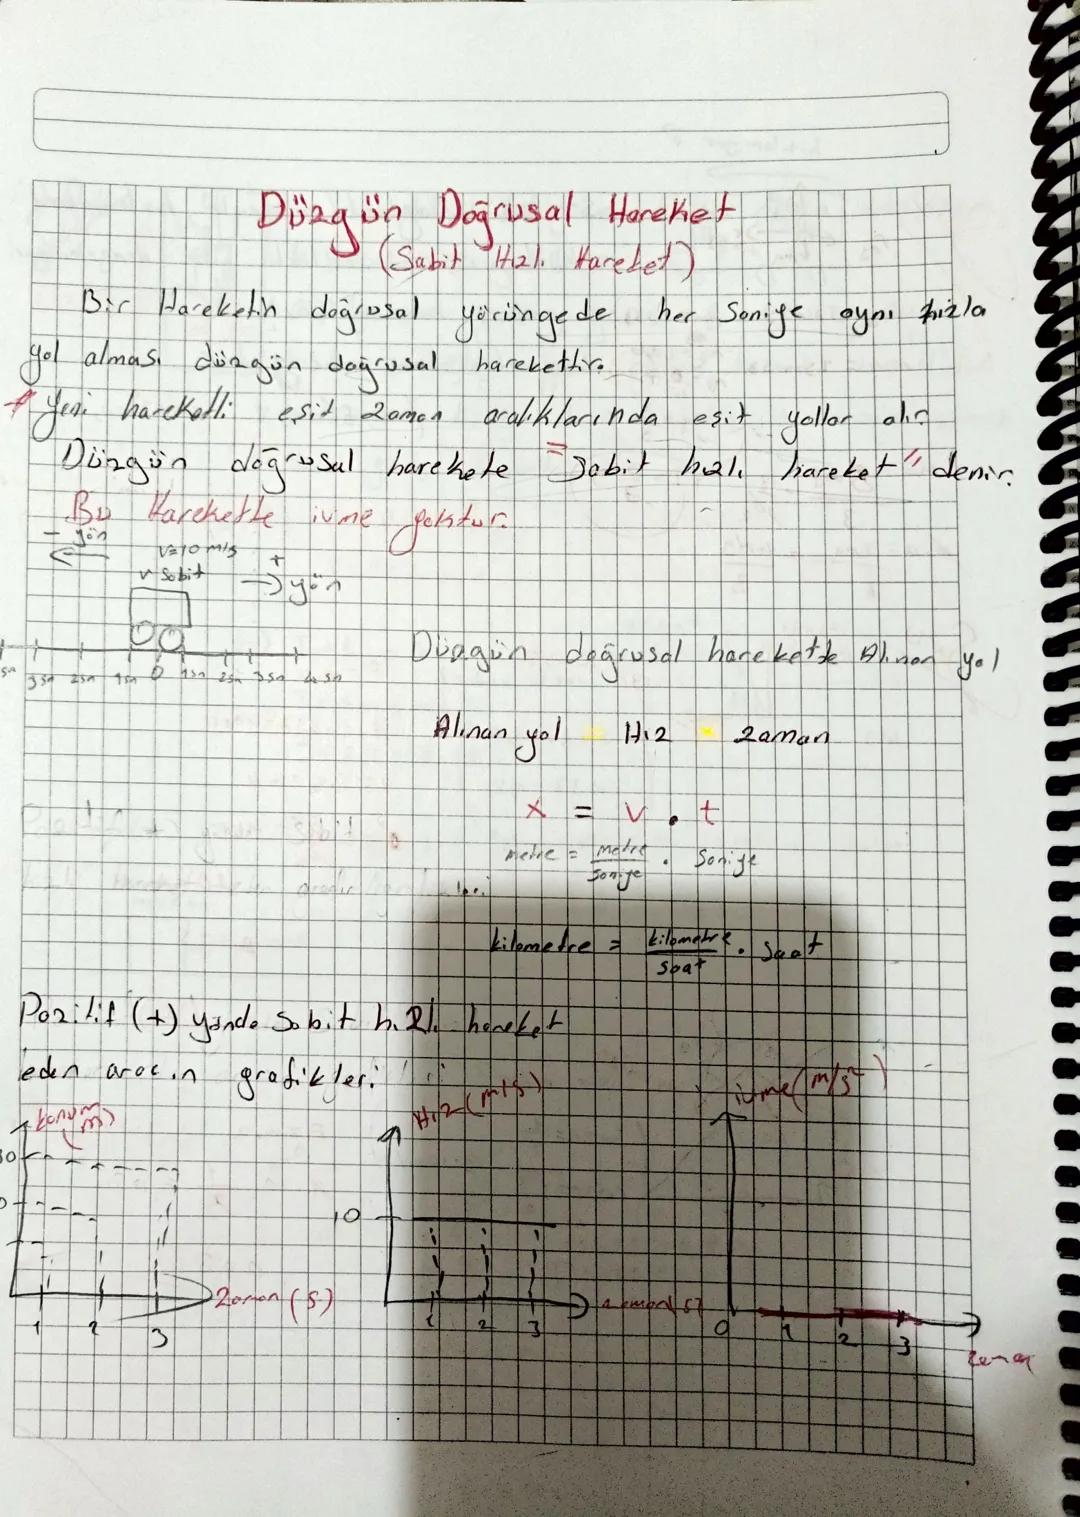 Düzgün Doğrusal Hareket
(Sabit Hızlı Hareket)
Bir Hareketin doğrusal yörüngede her Soniye aynı hızla
yol alması düzgün doğrusal harekettir.
* Yani hareketli eşit zaman aralıklarında eşit yollar alır
Düzgün doğrusal harekete "Sabit hızlı hareket" denir.
Bu Harekette ivme yoktur.
- yön
v=10 m/s
v sabit
+ yön
3sn 2sn 1sn 0 1sn 2sn 3sn 4sn
Düzgün doğrusal harekette Alınan yol
Alınan yol = Hız • zaman
x = v . t
metre = metre/Soniye . Soniye
kilometre = kilometre/saat . Saat
Pozitif (+) yönde Sabit hızlı hareket
eden aracın grafikleri
konum (m)
Hız (m/s)
ivme (m/s²)
10
1 2 3 Zaman (s)
1 2 3 zaman (s)
0 1 2 3 Zaman